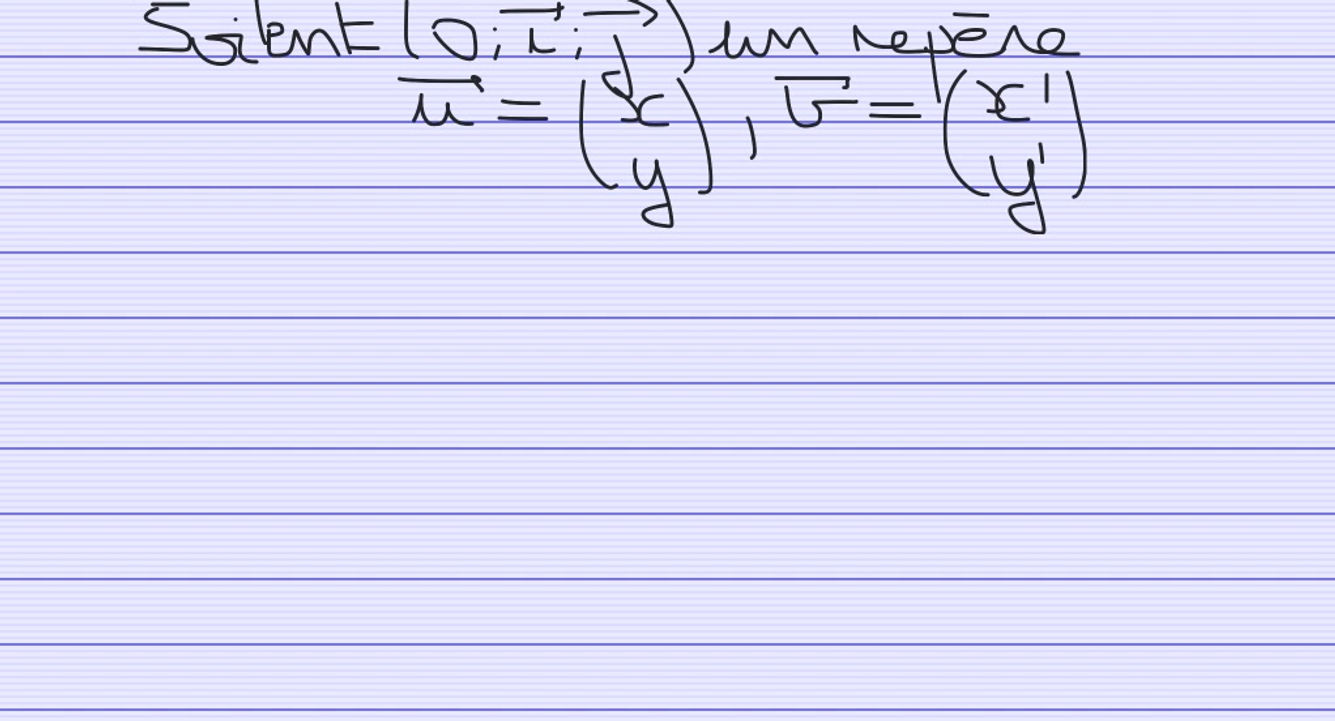 Soient (O; i⃗; j⃗) un repère
u⃗ = (x y), v⃗ = (x' y')